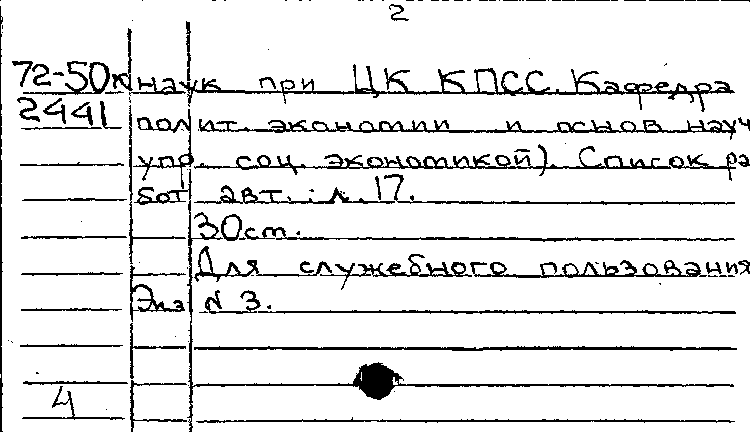 2
72-50к наук при ЦК КПСС. Кафедра
2441 полит. экономии и основ науч
упр. соц. экономикой). Список ра
бот авт.: л. 17.
30см.
Для служебного пользования
Экз N 3.
4